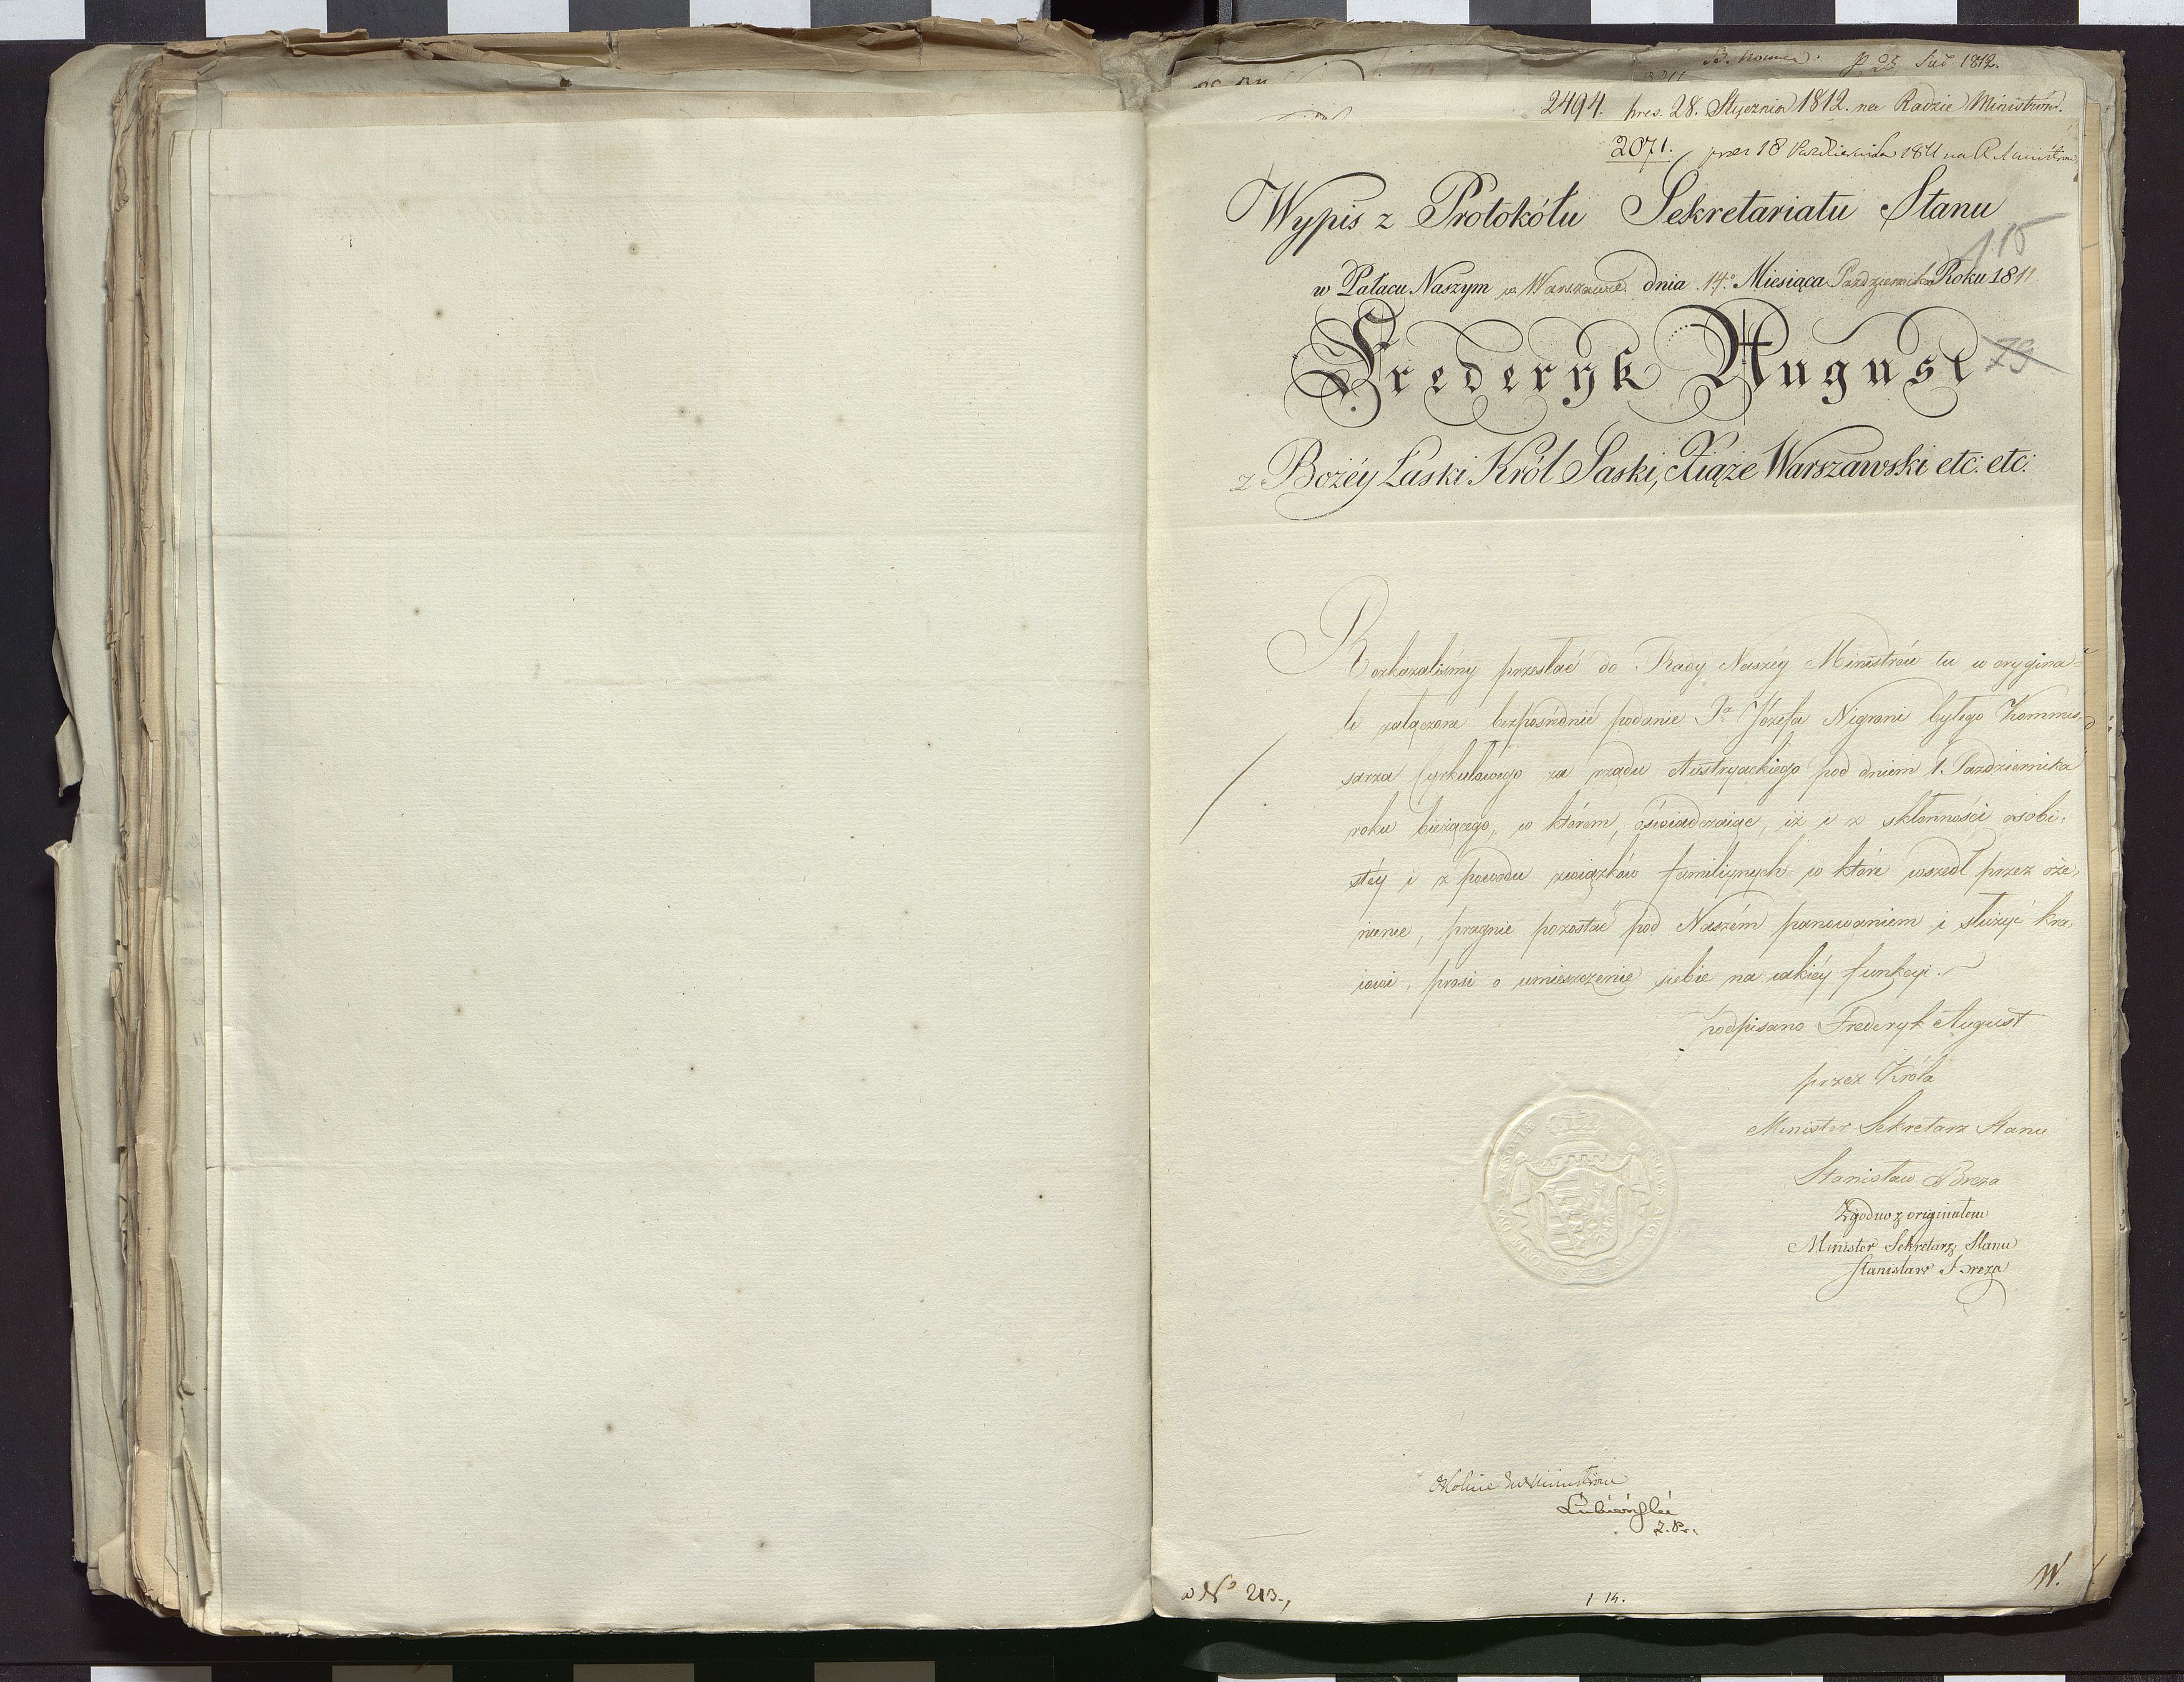 2494. pres. 28. Stycznia 1812. na Radzie Ministrów.
2071. pres 18 Października 1811 na R Ministrów
Wypis z Protokółu Sekretariatu Stanu
115
w Pałacu Naszym w Warszawie dnia 14º Miesiąca Października Roku 1811
Frederyk August
79
z Bożéy Łaski Król Saski, Xiąże Warszawski etc: etc:
Rozkazaliśmy przesłać do Rady Naszéy Ministrów tu w orygina=
le załączone bezpośrednie podanie Pa Józefa Nigroni byłego Kommis,
sarza Cyrkułowego za rządu Austryackiego pod dniem 1. Pazdziernika
roku bieżącego, w którem, oświadczaiąc, iż i z skłonności osobi,
stéy i z powodu związków familiynych w które wszedł przez oże,
nienie, pragnie pozostać pod Naszém panowaniem i służyć kra,
iowi, prosi o umieszczenie siebie na iakiéy funkcyi.
podpisano Frederyk August
przez Króla
Minister Sekretarz Stanu
Stanisław Breza
Zgodno z originałem
Minister Sekretarz Stanu
Stanisław Breza
Lubieński
w Nº 213.,
1 14.
W.